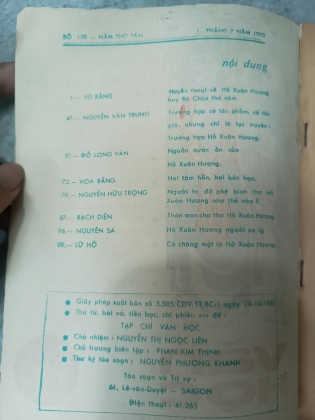 SỐ 108 — NĂM THỨ TÁM
1 - THÁNG 7 NĂM 1970
nội dung
1.— VŨ BẰNG Huyền thoại về Hồ Xuân Hương
hay Bà Chúa thơ nôm
NGUYỄN VĂN TRUNG Trường hợp có tác phẩm, có tác
giả, nhưng chỉ là tục truyền :
Trường hợp Hồ Xuân Hương.
ĐỖ LONG VÂN Nguồn nước ẩn của
Hồ Xuân Hương.
73.— HOA BẰNG Hai tâm hồn, hai bức họa.
NGUYỄN HỮU TRỌNG Người ta đã phê bình thơ Hồ
Xuân Hương như thế nào ?
87.— BẠCH DIỆN thơ Hồ Xuân Hương
NGUYÊN SA Hồ Xuân Hương người xa lạ
99.— LỮ HỒ Có chăng một là Hồ Xuân Hương
● Giấy phép xuất bản số 3.385/CDV/TT/BC1 ngày
● Thư từ, bài vở, tiền bạc, chi phiếu xin đề :
TẠP CHÍ VĂN HỌC
● Chủ nhiệm : NGUYỄN THỊ NGỌC LIÊN
● Chủ trương biên tập : PHAN KIM THỊNH
● Thư ký tòa soạn : NGUYỄN PHƯƠNG KHANH
Tòa soạn và Trị sự :
61, Lê-văn-Duyệt — SAIGON
Điện thoại : 41.265